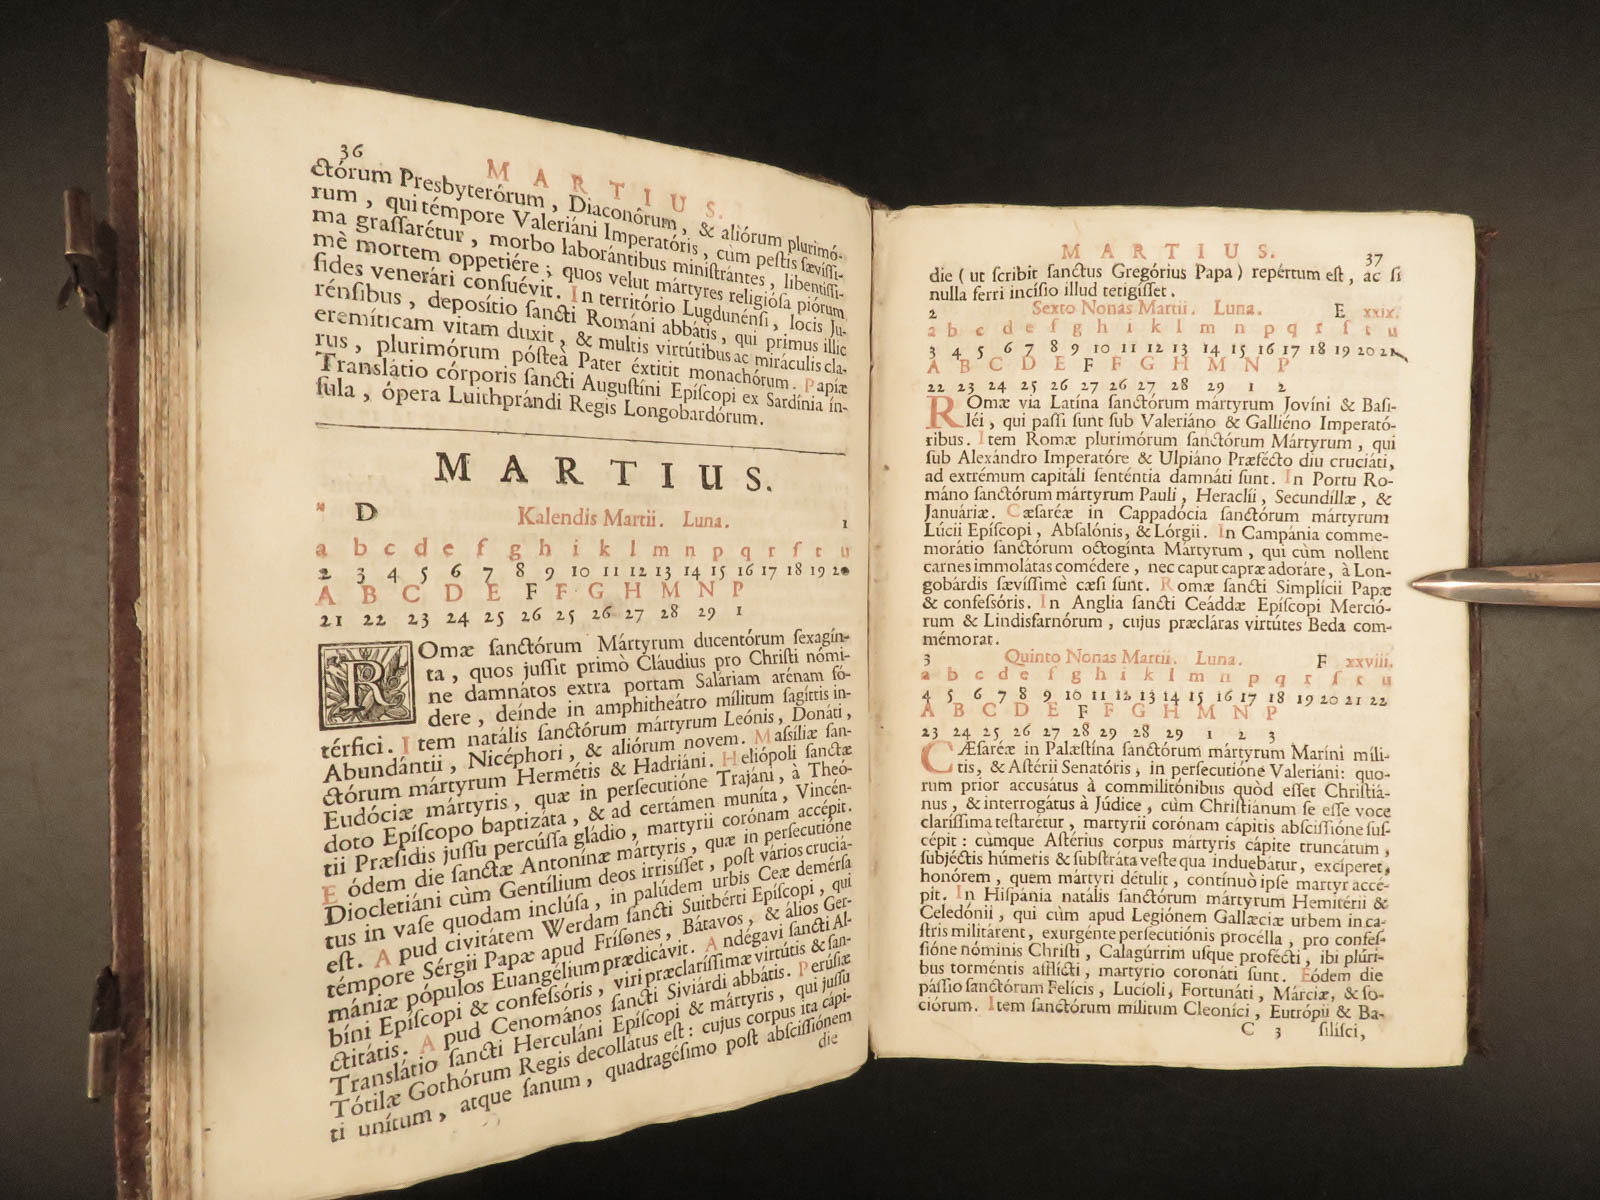 36
MARTIUS.
ctórum Presbyterórum, Diaconôrum, & aliórum plurimó-
rum, qui témpore Valeriáni Imperatóris, cùm pestis sævíssi-
ma grassarétur, morbo laborántibus ministrántes, libentíssi-
mè mortem oppetiére; quos velut mártyres religiósa piórum
fides venerári consuévit. In território Lugdunénsi, locis Ju-
rénsibus, deposítio sancti Románi abbátis, qui primus illic
eremíticam vitam duxit, & multis virtútibus ac miráculis cla-
rus, plurimórum pósteà Pater éxtitit monachórum. Papíæ
Translátio córporis sancti Augustíni Epíscopi ex Sardínia ín-
sula, ópera Luithprándi Regis Longobardórum.
MARTIUS.
D Kalendis Martii. Luna. 1
a b c d e f g h i k l m n p q r s t u
2 3 4 5 6 7 8 9 10 11 12 13 14 15 16 17 18 19 20
A B C D E F F G H M N P
21 22 23 24 25 26 25 26 27 28 29 1
ROmæ sanctórum Mártyrum ducentórum sexagín-
ta, quos jussit primò Cláudius pro Christi nómi-
ne damnátos extra portam Saláriam arénam fó-
dere, deínde in amphitheátro mílitum sagíttis in-
térfici. Item natális sanctórum mártyrum Leónis, Donáti,
Abundántii, Nicéphori, & aliórum novem. Massíliæ san-
ctórum mártyrum Hermétis & Hadriáni. Heliópoli sanctæ
Eudóciæ mártyris, quæ in persecutióne Trajáni, à Theó-
doto Epíscopo baptizáta, & ad certámen muníta, Vincén-
tii Præsidis jussu percússa gládio, martyrii corónam accépit.
Eódem die sanctæ Antonínæ mártyris, quæ in persecutióne
Diocletiáni cùm Gentílium deos irrisísset, post vários cruciá-
tus in vase quodam inclúsa, in palúdem urbis Ceæ demérsa
est. Apud civitátem Werdam sancti Suitbérti Epíscopi, qui
témpore Sérgii Papæ apud Frísones, Bátavos, & álios Ger-
mániæ pópulos Euangélium prædicávit. Andégavi sancti Al-
bíni Epíscopi & confessóris, viri præclaríssimæ virtútis & san-
ctitátis. Apud Cenomános sancti Siviárdi abbátis. Perúsiæ
Translátio sancti Herculáni Epíscopi & mártyris, qui jussu
Tótilæ Gothórum Regis decollátus est: cujus corpus ita cápi-
ti unítum, atque sanum, quadragésimo post abscissiónem
die
MARTIUS. 37
die (ut scribit sanctus Gregórius Papa) repértum est, ac si
nulla ferri incísio illud tetigísset.
2 Sexto Nonas Martii. Luna. E xxix.
a b c d e f g h i k l m n p q r s t u
3 4 5 6 7 8 9 10 11 12 13 14 15 16 17 18 19 20 21
A B C D E F F G H M N P
22 23 24 25 26 27 26 27 28 29 1 2
ROmæ via Latína sanctórum mártyrum Jovíni & Basi-
léi, qui passi sunt sub Valeriáno & Galliéno Imperató-
ribus. Item Romæ plurimórum sanctórum Mártyrum, qui
sub Alexándro Imperatóre & Ulpiáno Præfécto diu cruciáti,
ad extrémum capitáli senténtia damnáti sunt. In Portu Ro-
máno sanctórum mártyrum Pauli, Heraclíi, Secundíllæ, &
Januáriæ. Cæsaréæ in Cappadócia sanctórum mártyrum
Lúcii Epíscopi, Absalónis, & Lórgii. In Campánia comme-
morátio sanctórum octogínta Mártyrum, qui cùm nollent
carnes immolátas comédere, nec caput capræ adoráre, à Lon-
gobárdis sævíssimè cæsi sunt. Romæ sancti Simplícii Papæ
& confessóris. In Anglia sancti Ceáddæ Epíscopi Merció-
rum & Lindisfarnórum, cujus præcláras virtútes Beda com-
mémorat.
3 Quinto Nonas Martii. Luna. F xxviii.
a b c d e f g h i k l m n p q r s t u
4 5 6 7 8 9 10 11 12 13 14 15 16 17 18 19 20 21 22
A B C D E F F G H M N P
23 24 25 26 27 28 29 28 29 1 2 3
CÆsaréæ in Palæstína sanctórum mártyrum Maríni míli-
tis, & Astérii Senatóris, in persecutióne Valeriáni: quo-
rum prior accusátus à commilitónibus quòd esset Christiá-
nus, & interrogátus à Júdice, cùm Christiánum se esse voce
claríssima testarétur, martyrii corónam cápitis abscissióne sus-
cépit: cùmque Astérius corpus mártyris cápite truncátum,
subjéctis húmeris & substráta veste qua induebátur, excíperet,
honórem, quem mártyri détulit, contínuò ipse martyr accé-
pit. In Hispánia natális sanctórum mártyrum Hemitérii &
Celedónii, qui cùm apud Legiónem Gallæciæ urbem in ca-
stris militárent, exurgénte persecutiónis procélla, pro confes-
sióne nóminis Christi, Calagúrrim usque profécti, ibi plúri-
bus torméntis afflícti, martyrio coronáti sunt. Eódem die
pássio sanctórum Felícis, Lucíoli, Fortunáti, Márciæ, & so-
ciórum. Item sanctórum mílitum Cleoníci, Eutrópii & Ba-
C 3 silísci,